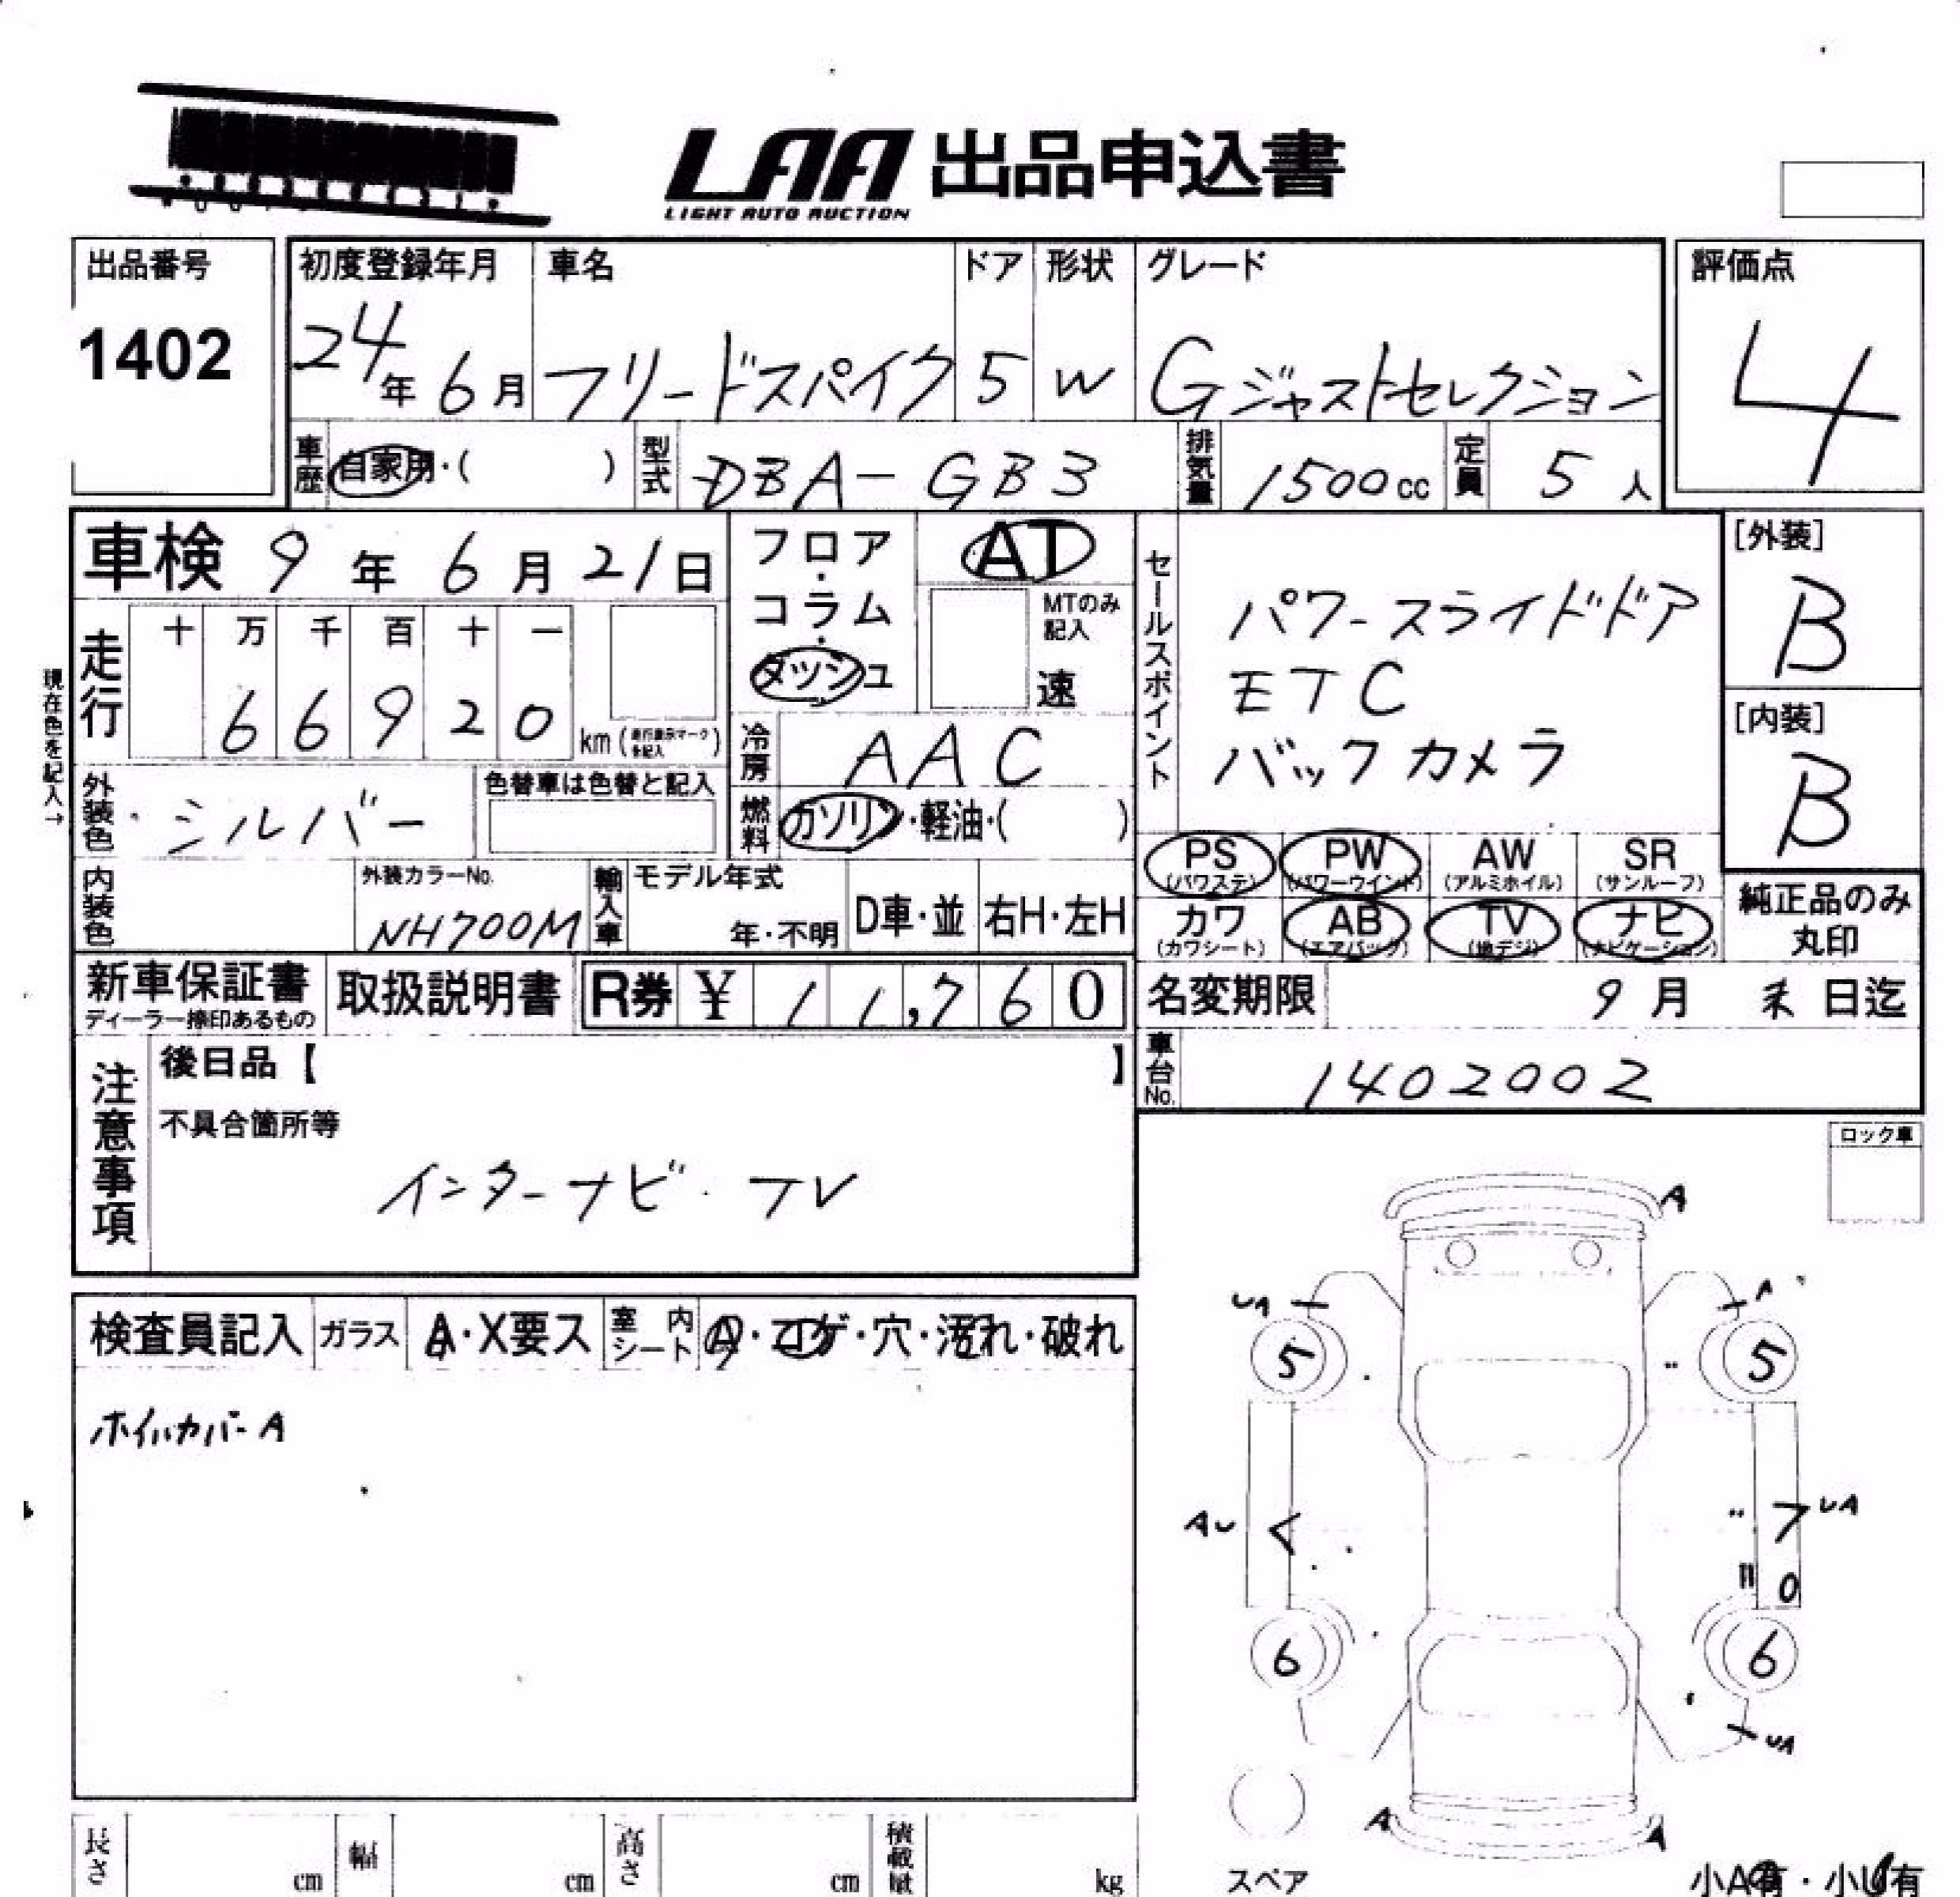 LAA 出品申込書
LIGHT AUTO AUCTION
出品番号
1402
初度登録年月
24年6月
車名
フリードスパイク
ドア
5
形状
W
グレード
Gジャストセレクション
評価点
4
車歴 自家用・( )
型式 DBA-GB3
排気量 1500cc
定員 5人
車検 9年6月21日
フロア・コラム・ダッシュ
AT
MTのみ記入
速
セールスポイント
パワースライドドア
ETC
バックカメラ
[外装]
B
[内装]
B
現在色を記入→
走行
十 万 千 百 十 一
6 6 9 2 0 km(走行表示マークを記入)
冷房 AAC
外装色 シルバー
色替車は色替と記入
燃料 ガソリン・軽油・( )
PS (パワステ) PW (パワーウインド) AW (アルミホイル) SR (サンルーフ)
カワ (カワシート) AB (エアバック) TV (地デジ) ナビ (ナビゲーション)
純正品のみ
丸印
内装色
外装カラーNo.
NH700M
輸入車
モデル年式
年・不明
D車・並
右H・左H
新車保証書
ディーラー捺印あるもの
取扱説明書
R券 ¥ 11,760
名変期限 9月末日迄
車台No. 1402002
注意事項
後日品【 】
不具合箇所等
インターナビ・TV
ロック車
検査員記入 ガラス A・X要ス 室内シート A・コゲ・穴・汚れ・破れ
ホイルカバーA
A
UA
A
5
5
AU
<
7
UA
0
6
6
UA
A
A
スペア
小A有・小U有
長さ cm 幅 cm 高さ cm 積載量 kg